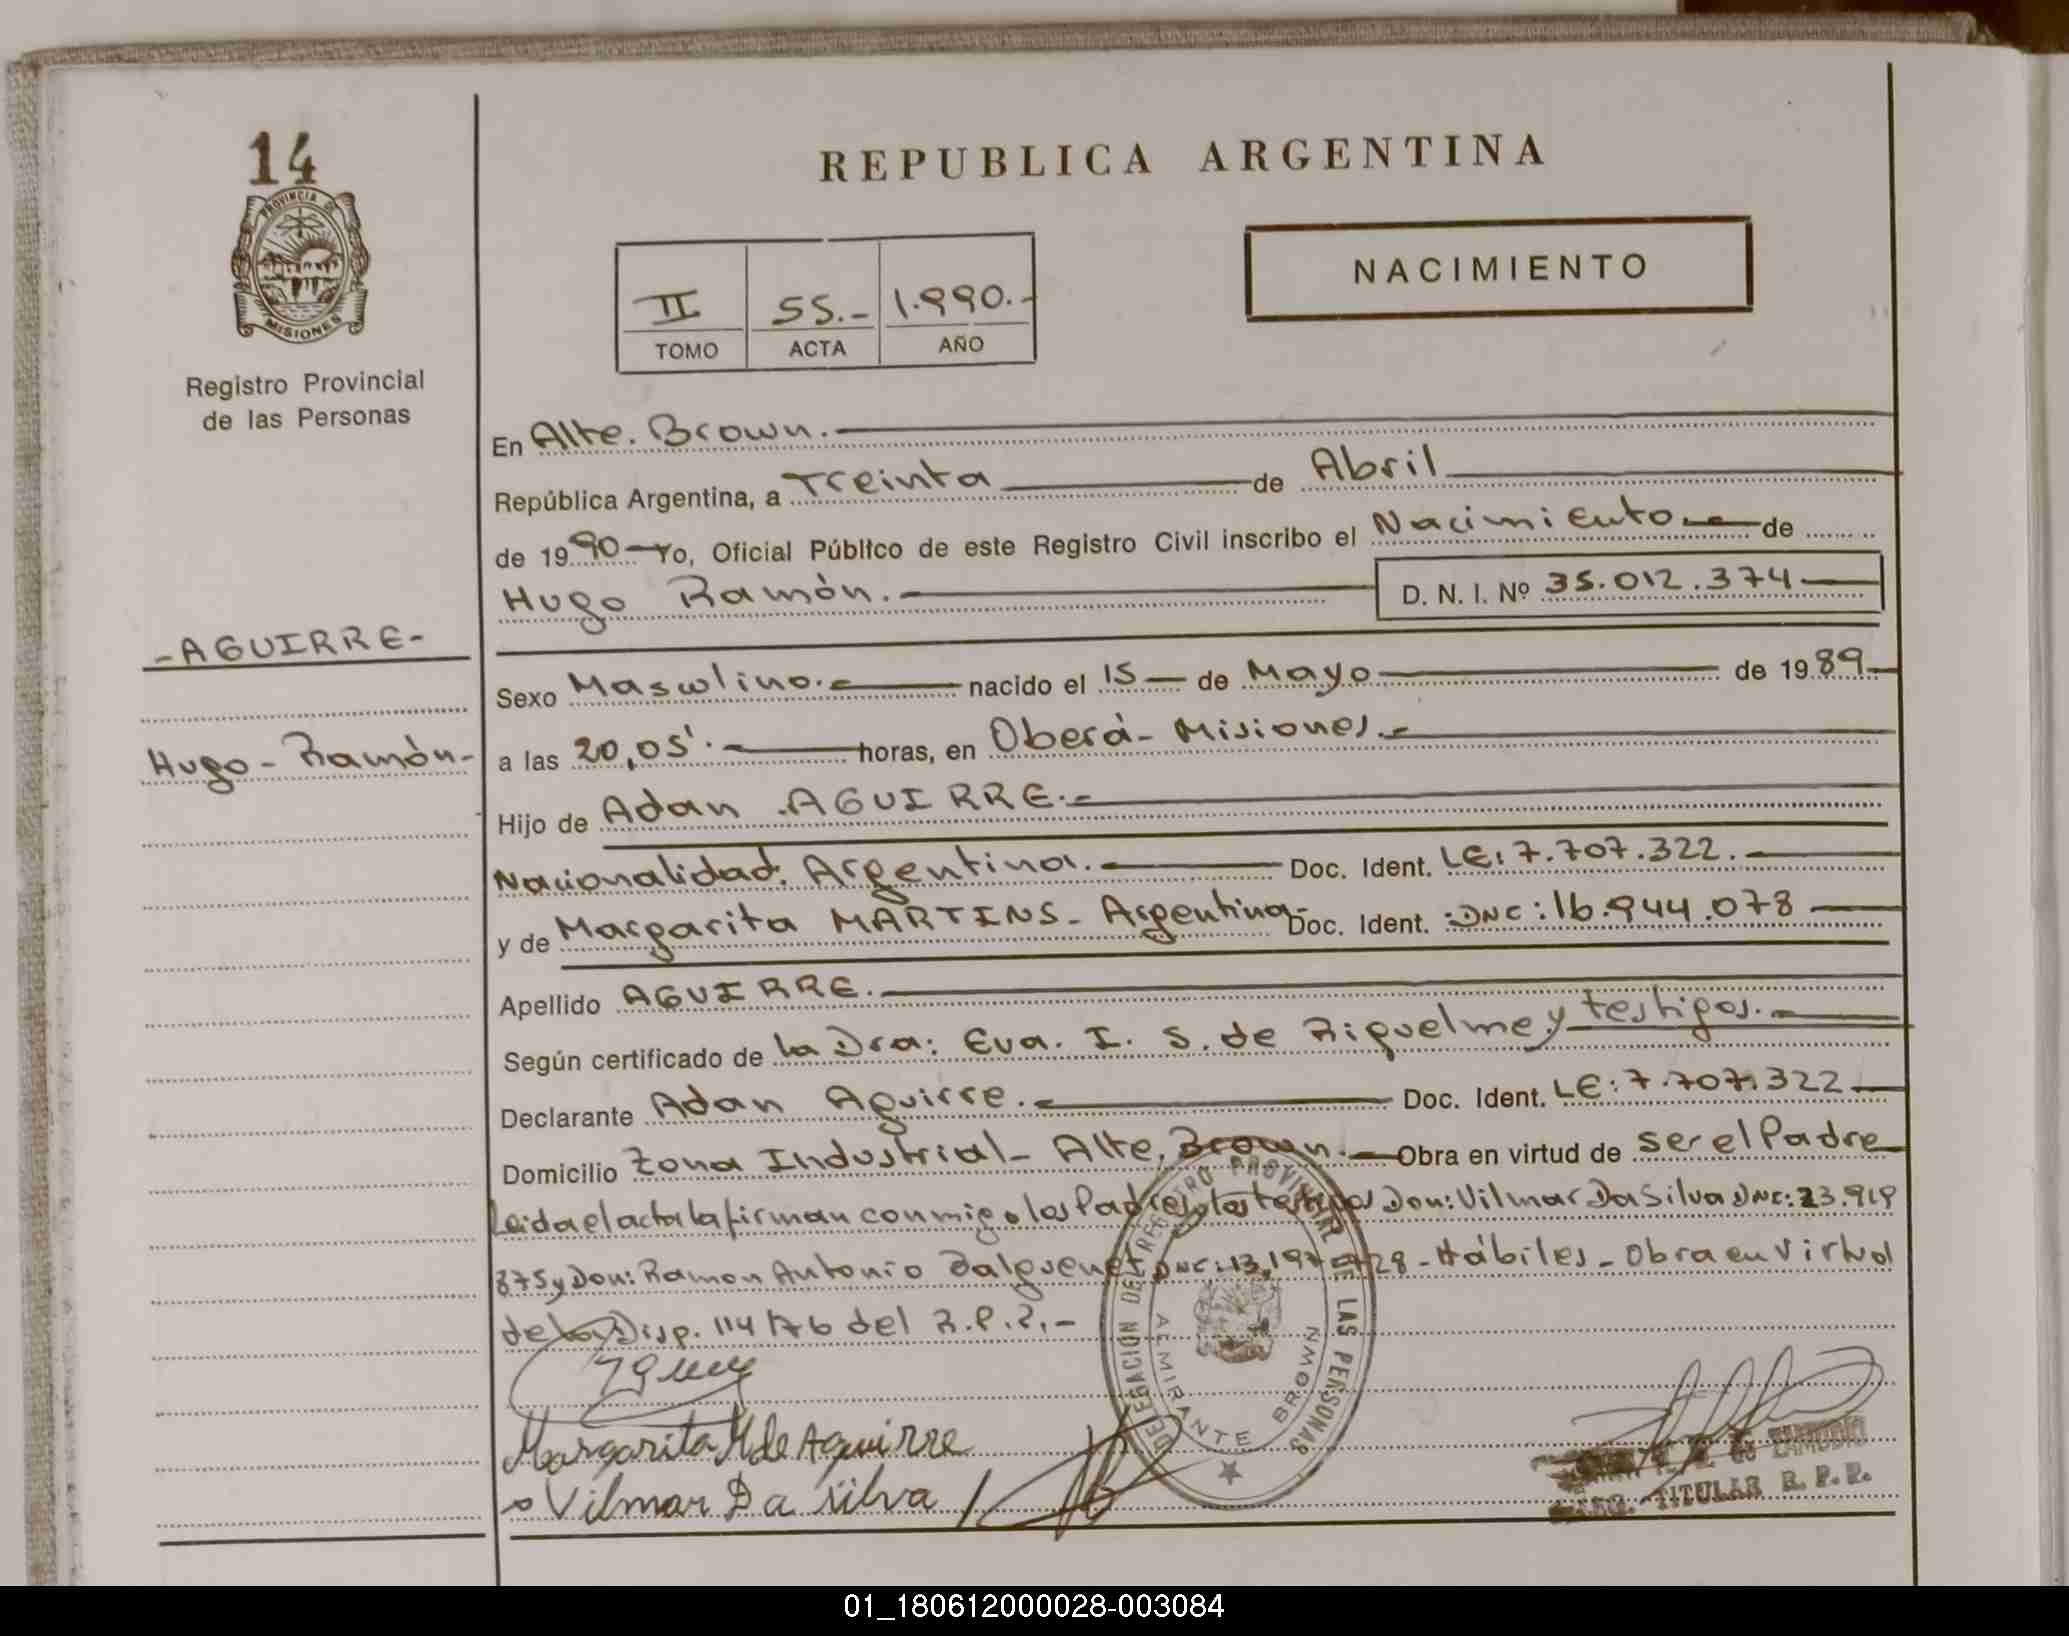 14
PROVINCIA DE
MISIONES
Registro Provincial
de las Personas
REPUBLICA ARGENTINA
NACIMIENTO
II 55.- 1.990.-
TOMO ACTA AÑO
En Alte. Brown.
República Argentina, a Treinta de Abril
de 1990 Yo, Oficial Público de este Registro Civil inscribo el Nacimiento de
Hugo Ramón. D. N. I. Nº 35.012.374
-AGUIRRE-
Hugo - Ramón-
Sexo Masculino. nacido el 15 de Mayo de 1989
a las 20,05'. horas, en Oberá - Misiones.
Hijo de Adan AGUIRRE.
Nacionalidad. Argentina. Doc. Ident. LE: 7.707.322.
y de Margarita MARTINS - Argentina- Doc. Ident. DNC: 16.944.078
Apellido AGUIRRE.
Según certificado de la Dra: Eva. I. S. de Riquelme y testigos.
Declarante Adan Aguirre. Doc. Ident. LE: 7.707.322
Domicilio Zona Industrial - Alte. Brown. Obra en virtud de ser el Padre
Leida el acta la firman conmigo los Padres y los testigos Don: Vilmar Da Silva DNC: 23.919
375 y Don: Ramon Antonio DNC: 13,197 - Hábiles - Obra en Virtud
de la Disp. 114/76 del R.P.P.-
Margarita M de Aguirre
Vilmar Da Silva
DELEGACIÓN DEL REGISTRO PROVINCIAL DE LAS PERSONAS
ALMIRANTE BROWN
DE ZAMUDIO
TITULAR R. P. P.
01_180612000028-003084